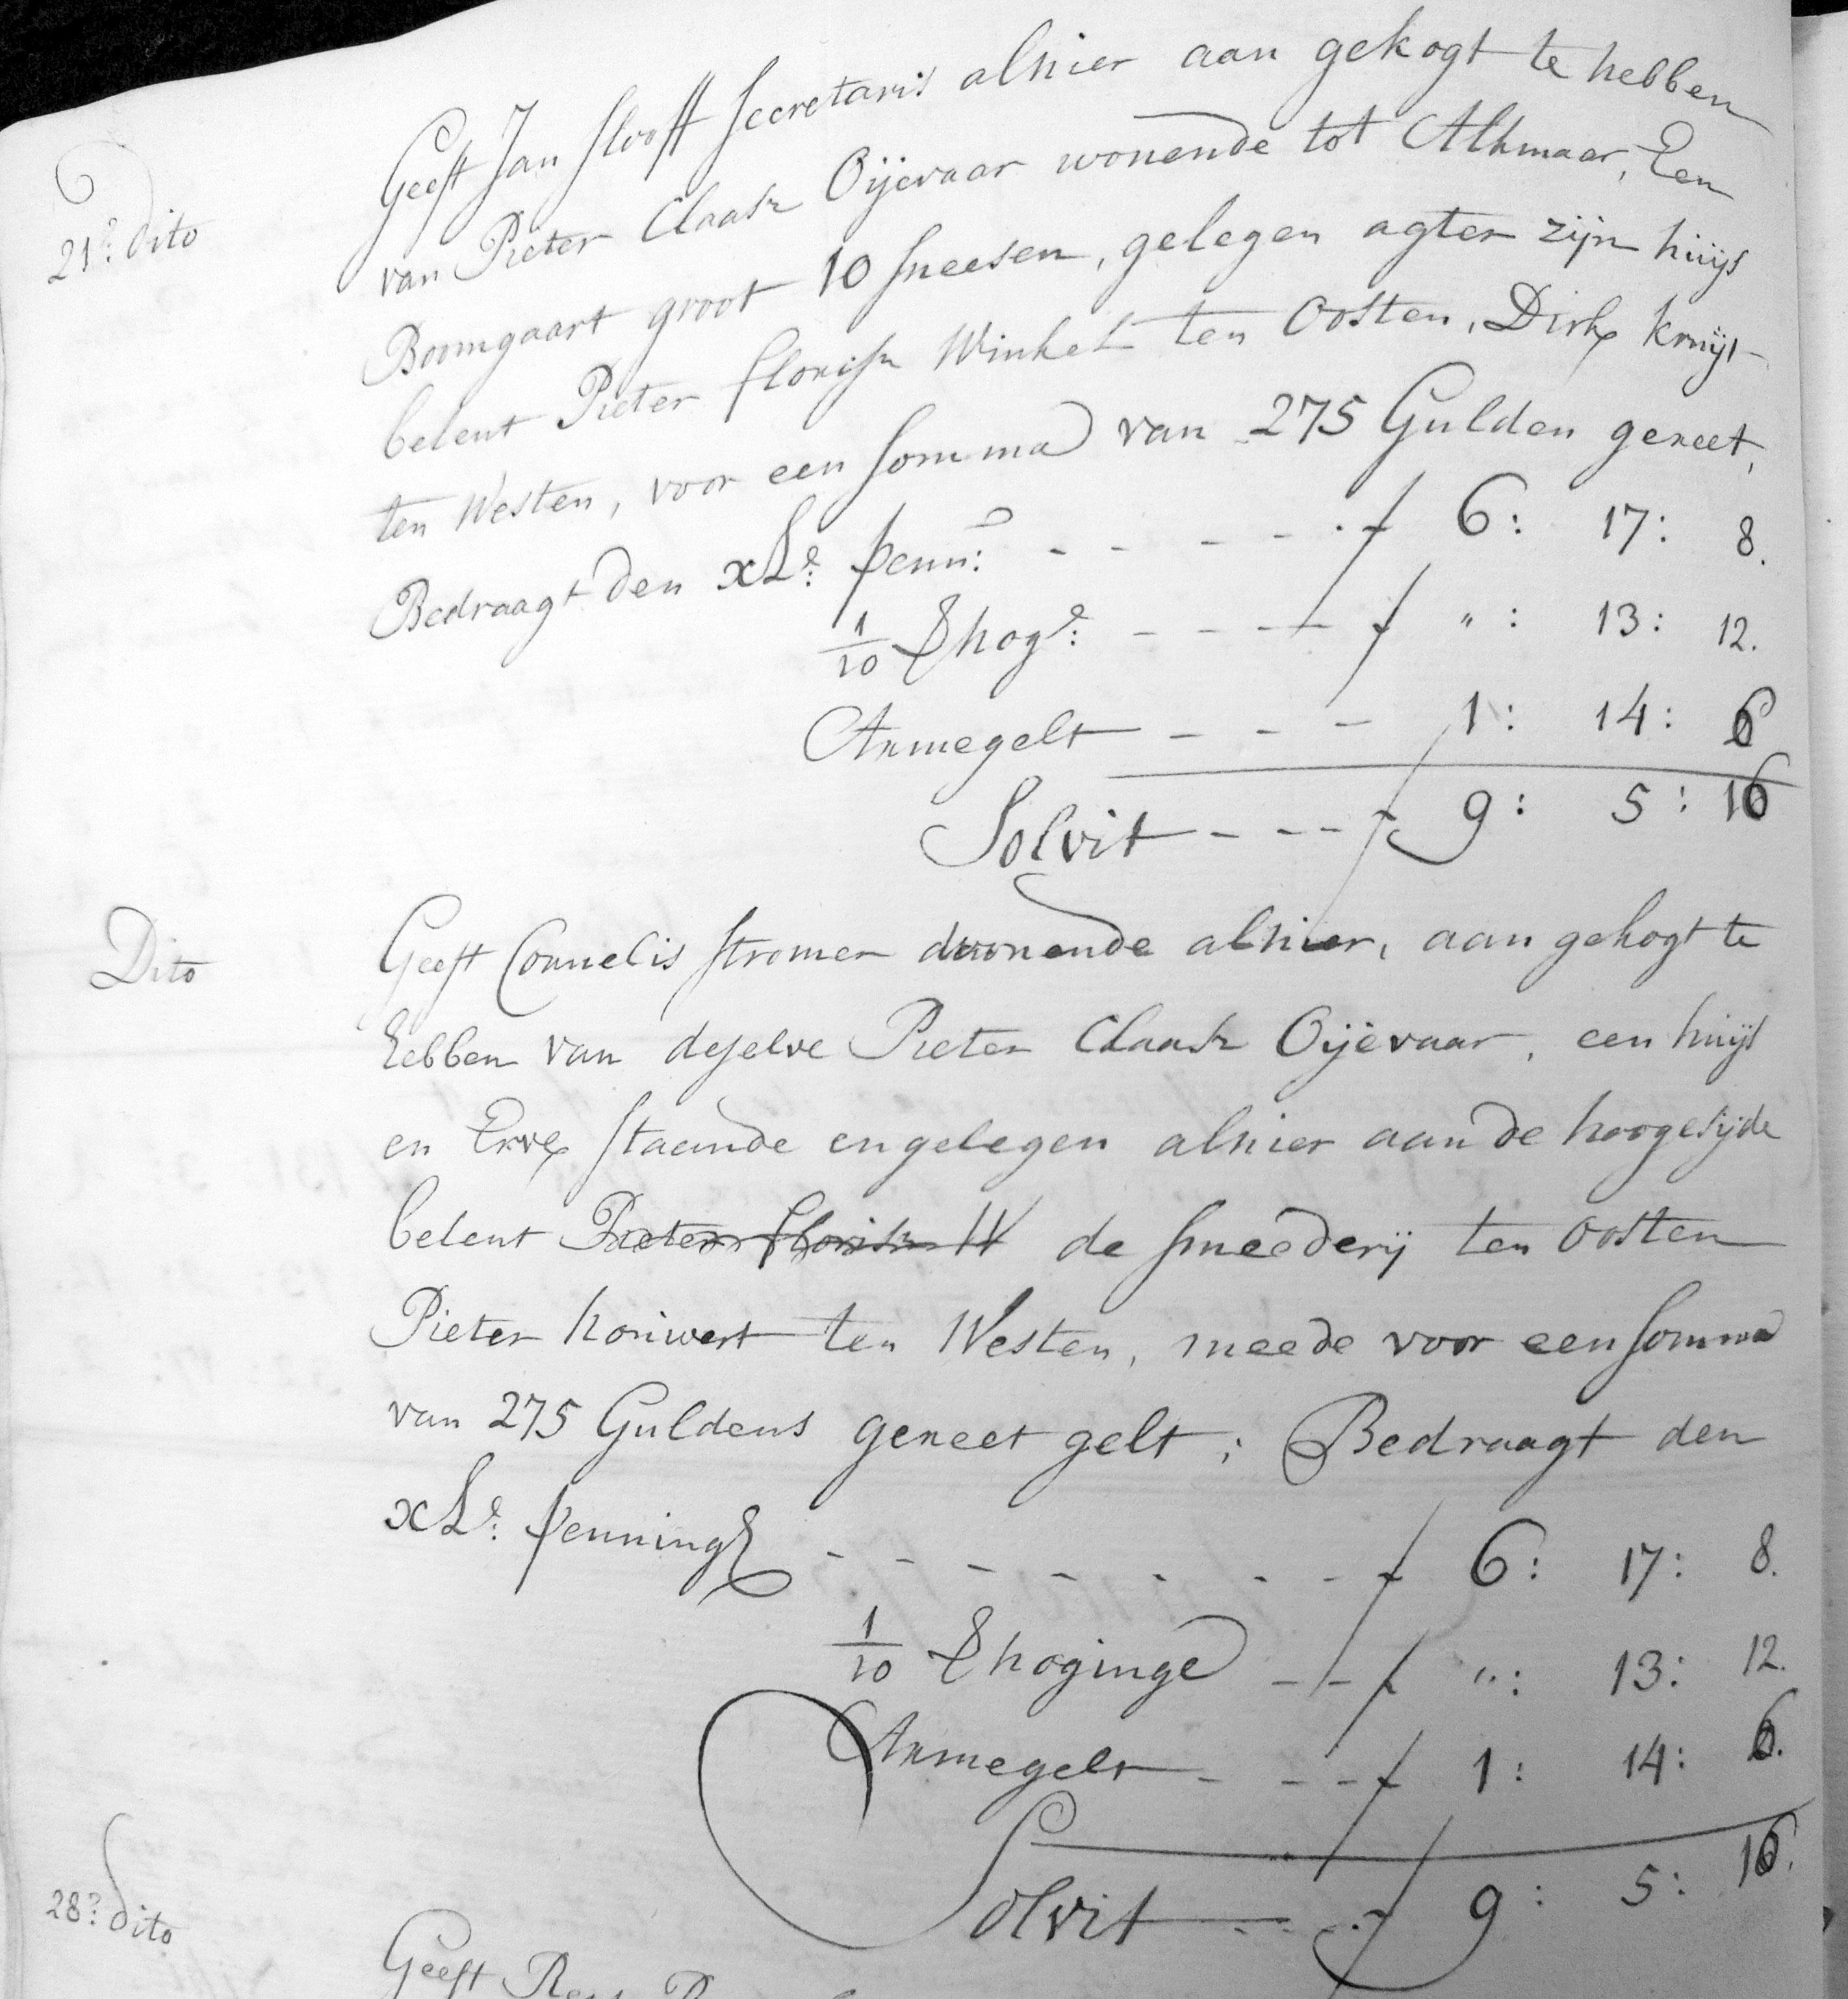 21e: dito
Geeft Jan Slooff Secretaris alhier aan gekogt te hebben
van Pieter Claasz Oijevaar wonende tot Alkmaar, Een
Boomgaart groot 10 sneesen, gelegen agter zijn huijs
belent Pieter florisz Winkel ten Oosten, Dirk kruijt
ten Westen, voor een somma van 275 Gulden gereet,
Bedraagt den xLe: penn: - - - - - f 6: 17: 8.
1/10 Vhoge: - - - f ": 13: 12.
Armegelt - - - 1: 14: 6
Solvit - - - f 9: 5: 10
Dito
Geeft Cornelis Stromer wonende alhier, aan gekogt te
hebben van deselve Pieter Claasz Oijevaar, een huijs
en Erve staende en gelegen alhier aan de hoogesijde
belent Pieter florisz W de smeederij ten oosten
Pieter ten Westen, meede voor een somma
van 275 Guldens gereet gelt; Bedraagt den
xLe: penning - - - - - - - f 6: 17: 8.
1/10 Vhoginge - - f ": 13: 12.
Armegelt - - - f 1: 14: 6.
Solvit - - - f 9: 5: 10.
28e: dito
Geeft